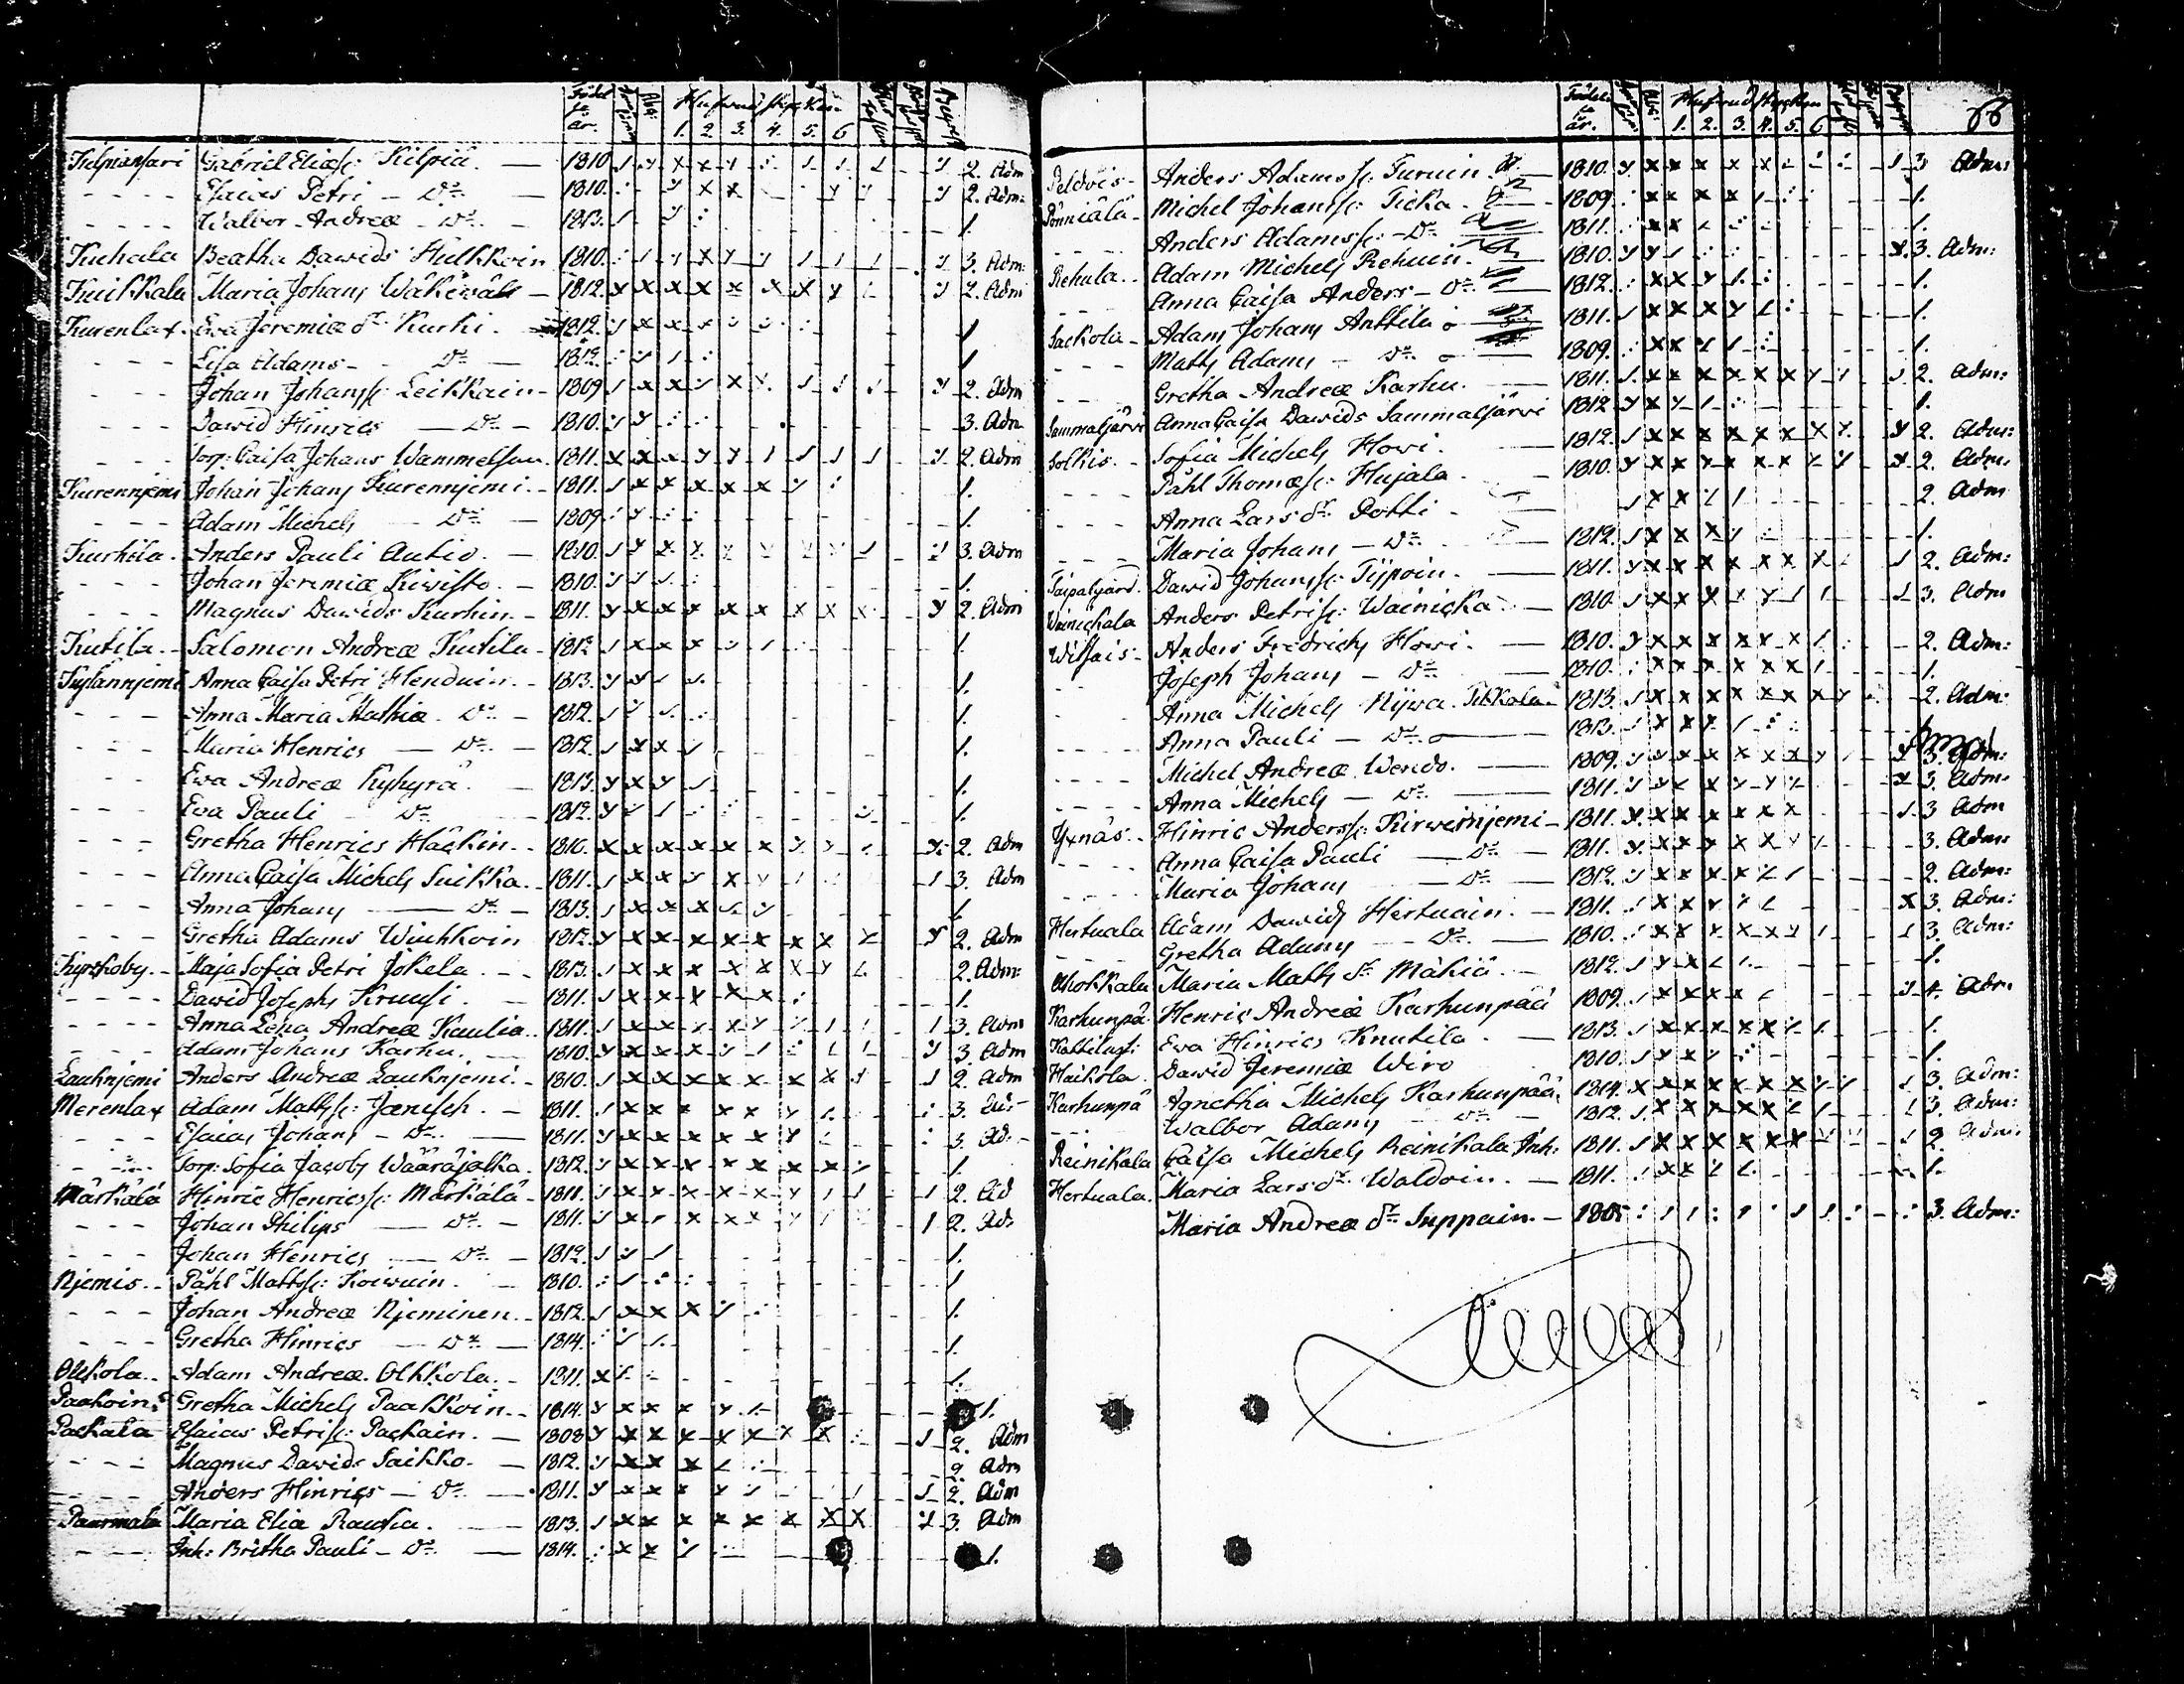 Födel se år. Abc. Hufwudstycken
1. 2. 3. 4. 5. 6
Kilpiansari Gabriel Eliæss: Kilpiä. — 1810 2. Adm
- - - - Esaias Petri — Do — 1810. 2. Adm:
- - - - Walbor Andreæ — Do — 1813. 1.
Kuchala Beatha Dawids Hulkkoin 1810. 3. Adm:
Kuikkala Maria Johans Wäkewäs — 1812. 2. Adm
Kurenlax. Ewa Jeremiæ dr Kurki. 1812. 1
- - - Lisa Adams — Do — 1812. 1
- - - Johan Johanss: Leikkain — 1809 2. Adm
- - - Dawid Hinrics — Do — 1810. 3. Adm
- - - Sorp: Caisa Johans Wammelsuu 1811. 2. Adm
Kurennjemi Johan Johans Kurennjemi. — 1811. 1.
- - - Adam Michels — Do — 1809. 1.
Kurkila. Anders Pauli Autio. — 1810. 3. Adm
- - - Johan Jeremiæ Kiwisto. — 1810. 1.
- - - Magnus Dawids Kurkin. — 1811. 2. Adm
Kutila. Salomon Andreæ Kutila — 1812 1.
Kylännjemi Anna Caisa Petri Henduin. — 1813. 1.
- - - Anna Maria Mathiæ Do — 1812. 1.
- - - Maria Henrics — Do — 1812. 1.
- - - Ewa Andreæ Kyhyrä. — 1813. 1.
- - - Ewa Pauli — Do — 1812. 1.
- - - Gretha Henrics Häckin. — 1810. 2. Adm
- - - Anna Caisa Michels Suikka. — 1811. 3. Adm
- - - Anna Johans — Do — 1813. 1.
- - - Gretha Adams Wiuhkoin 1812. 2. Adm
Kyrkoby. — Maja Sofia Petri Jokela. — 1813. 2. Adm:
- - - - Dawid Josephs Kruusi. — 1811. 1.
- - - - Anna Lena Andreæ Kaulia. 1811. 3. Adm
- - - - Adam Johans Karhu. — 1810. 3 Adm
Lauknjemi Anders Andreæ Lauknjemi. — 1810. 2. Adm
Merenlax Adam Mattss: Jænisch. — 1811. 3.
- - - Esaias Johans — Do — 1811. 3. Ad.
- - - Sorp: Sofia Jacobs Wäärajalka. 1812. 1.
Märkälä Hinric Henricss: Märkälä — 1811. 2. Ad
- - - Johan Philips — Do — 1811. 2. Ad.
- - - Johan Henrics — Do — 1812. 1.
Njemis. — Påhl Mattss: Koiwuin. — 1810. 1
- - - Johan Andreæ Njeminen. — 1812. 1.
- - - Gretha Hinrics — Do — 1814. 1.
Olkkola. Adam Andreæ Olkkola. — 1811. 1.
Paakoin. Gretha Michels Paakkoin. — 1814. 1.
Packala Esaias Petriss: Packain. — 1808 2. Adm
- - - Magnus Dawids Saikko. — 1812. 2. Adm
- - - Anders Hinrics — Do — 1811. 2. Adm
Paarmala Maria Eliæ Rausia. — 1813. 3. Adm
- - - Inh: Britha Pauli — Do — 1814. 1.
Födel se år. Abc. Hufwudstycken
1. 2. 3. 4. 5. 6
Peldois — Anders Adamss: Turuin. 1810. 3 Adm:
Pönniälä — Michel Johanss: Ticka. — 1809. 1.
- - - Anders Adamss: — Do 1811. 1.
Rehula. Adam Michels Rehuin. 1810. 3. Adm:
Anna Caisa Anders — Do 1812. 1.
Sackola — Adam Johans Anttila 1811. 1.
Matts Adams — Do — 1809. 1.
- - - Gretha Andreæ Karhu. — 1811. 2. Adm:
Sammaljärwi Anna Caisa Dawids Sammaljärwi 1812 1.
Solkis. — Sofia Michels Howi. — 1812. 2. Adm:
- - - Påhl Thomæss: Hujala. 1810. 2. Adm.
- - - Anna Lars dr Potti — 2. Adm
- - Maria Johans — Do 1812. 1.
Taipaljärwi. Dawid Johanss: Tijpoin. — 1811. 2. Adm:
Wainickala Anders Petriss: Wainicka. — 1810 3. Adm
Wilfais — Anders Fredrics Howi. — 1810. 2. Adm:
- - Joseph Johans — Do 1810. 1.
- - Anna Michels Nijwa. Tikkala. 1813. 2. Adm:
- - Anna Pauli — Do — 1813.
- - - - Michel Andreæ Wendo. — 1809. 3. Adm:
- - - - Anna Michels — Do — 1811. 3. Adm.
Yxnäs. — Hinric Anderss: Kirwesnjemi — 1811. 3 Adm
- - - - Anna Caisa Pauli — Do — 1811. 3. Adm:
- - - - Maria Johans — Do — 1812. 2. Adm:
Hertuala Adam Dawids Hertuain. — 1811. 3. Adm:
- - - Gretha Adams — Do — 1810. 3. Adm:
Ahokkala Maria Matts dr Mäkiä. — 1812. 1.
Karhunpä. Henric Andreæ Karhunpää 1809. 4. Adm
Ewa Hinrics Knutila. — 1813. 1.
Haikola. Dawid Jeremiæ Wiro 1810. 1.
Karhunpä Agnetha Michels Karhunpää. 1814. 3. Adm:
- - - Walbor Adams — Do — 1812. 3. Adm:
Reinikala Caisa Michels Reinikala Inh: 1811. 2. Adm:
Hertuala. Maria Lars dr Waldoin. — 1811. 1.
Maria Andreæ dr Suppain. — 1805 3. Adm: